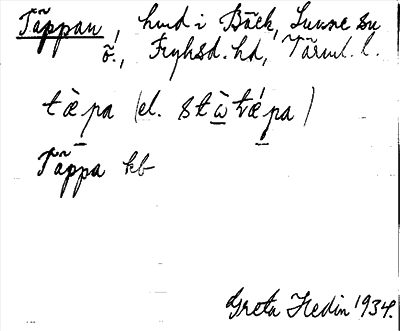 Täppan, hmd i Bäck, Sunne sn
ö., Fryksd. hd, Värml. l.
tæ̀pa (el. stὼtvǽpa)
Täppa kb
Greta Hedin 1934.